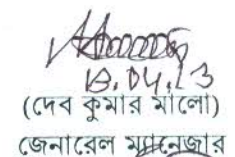 13.04.23
(দেব কুমার মালো)
জেনারেল ম্যানেজার